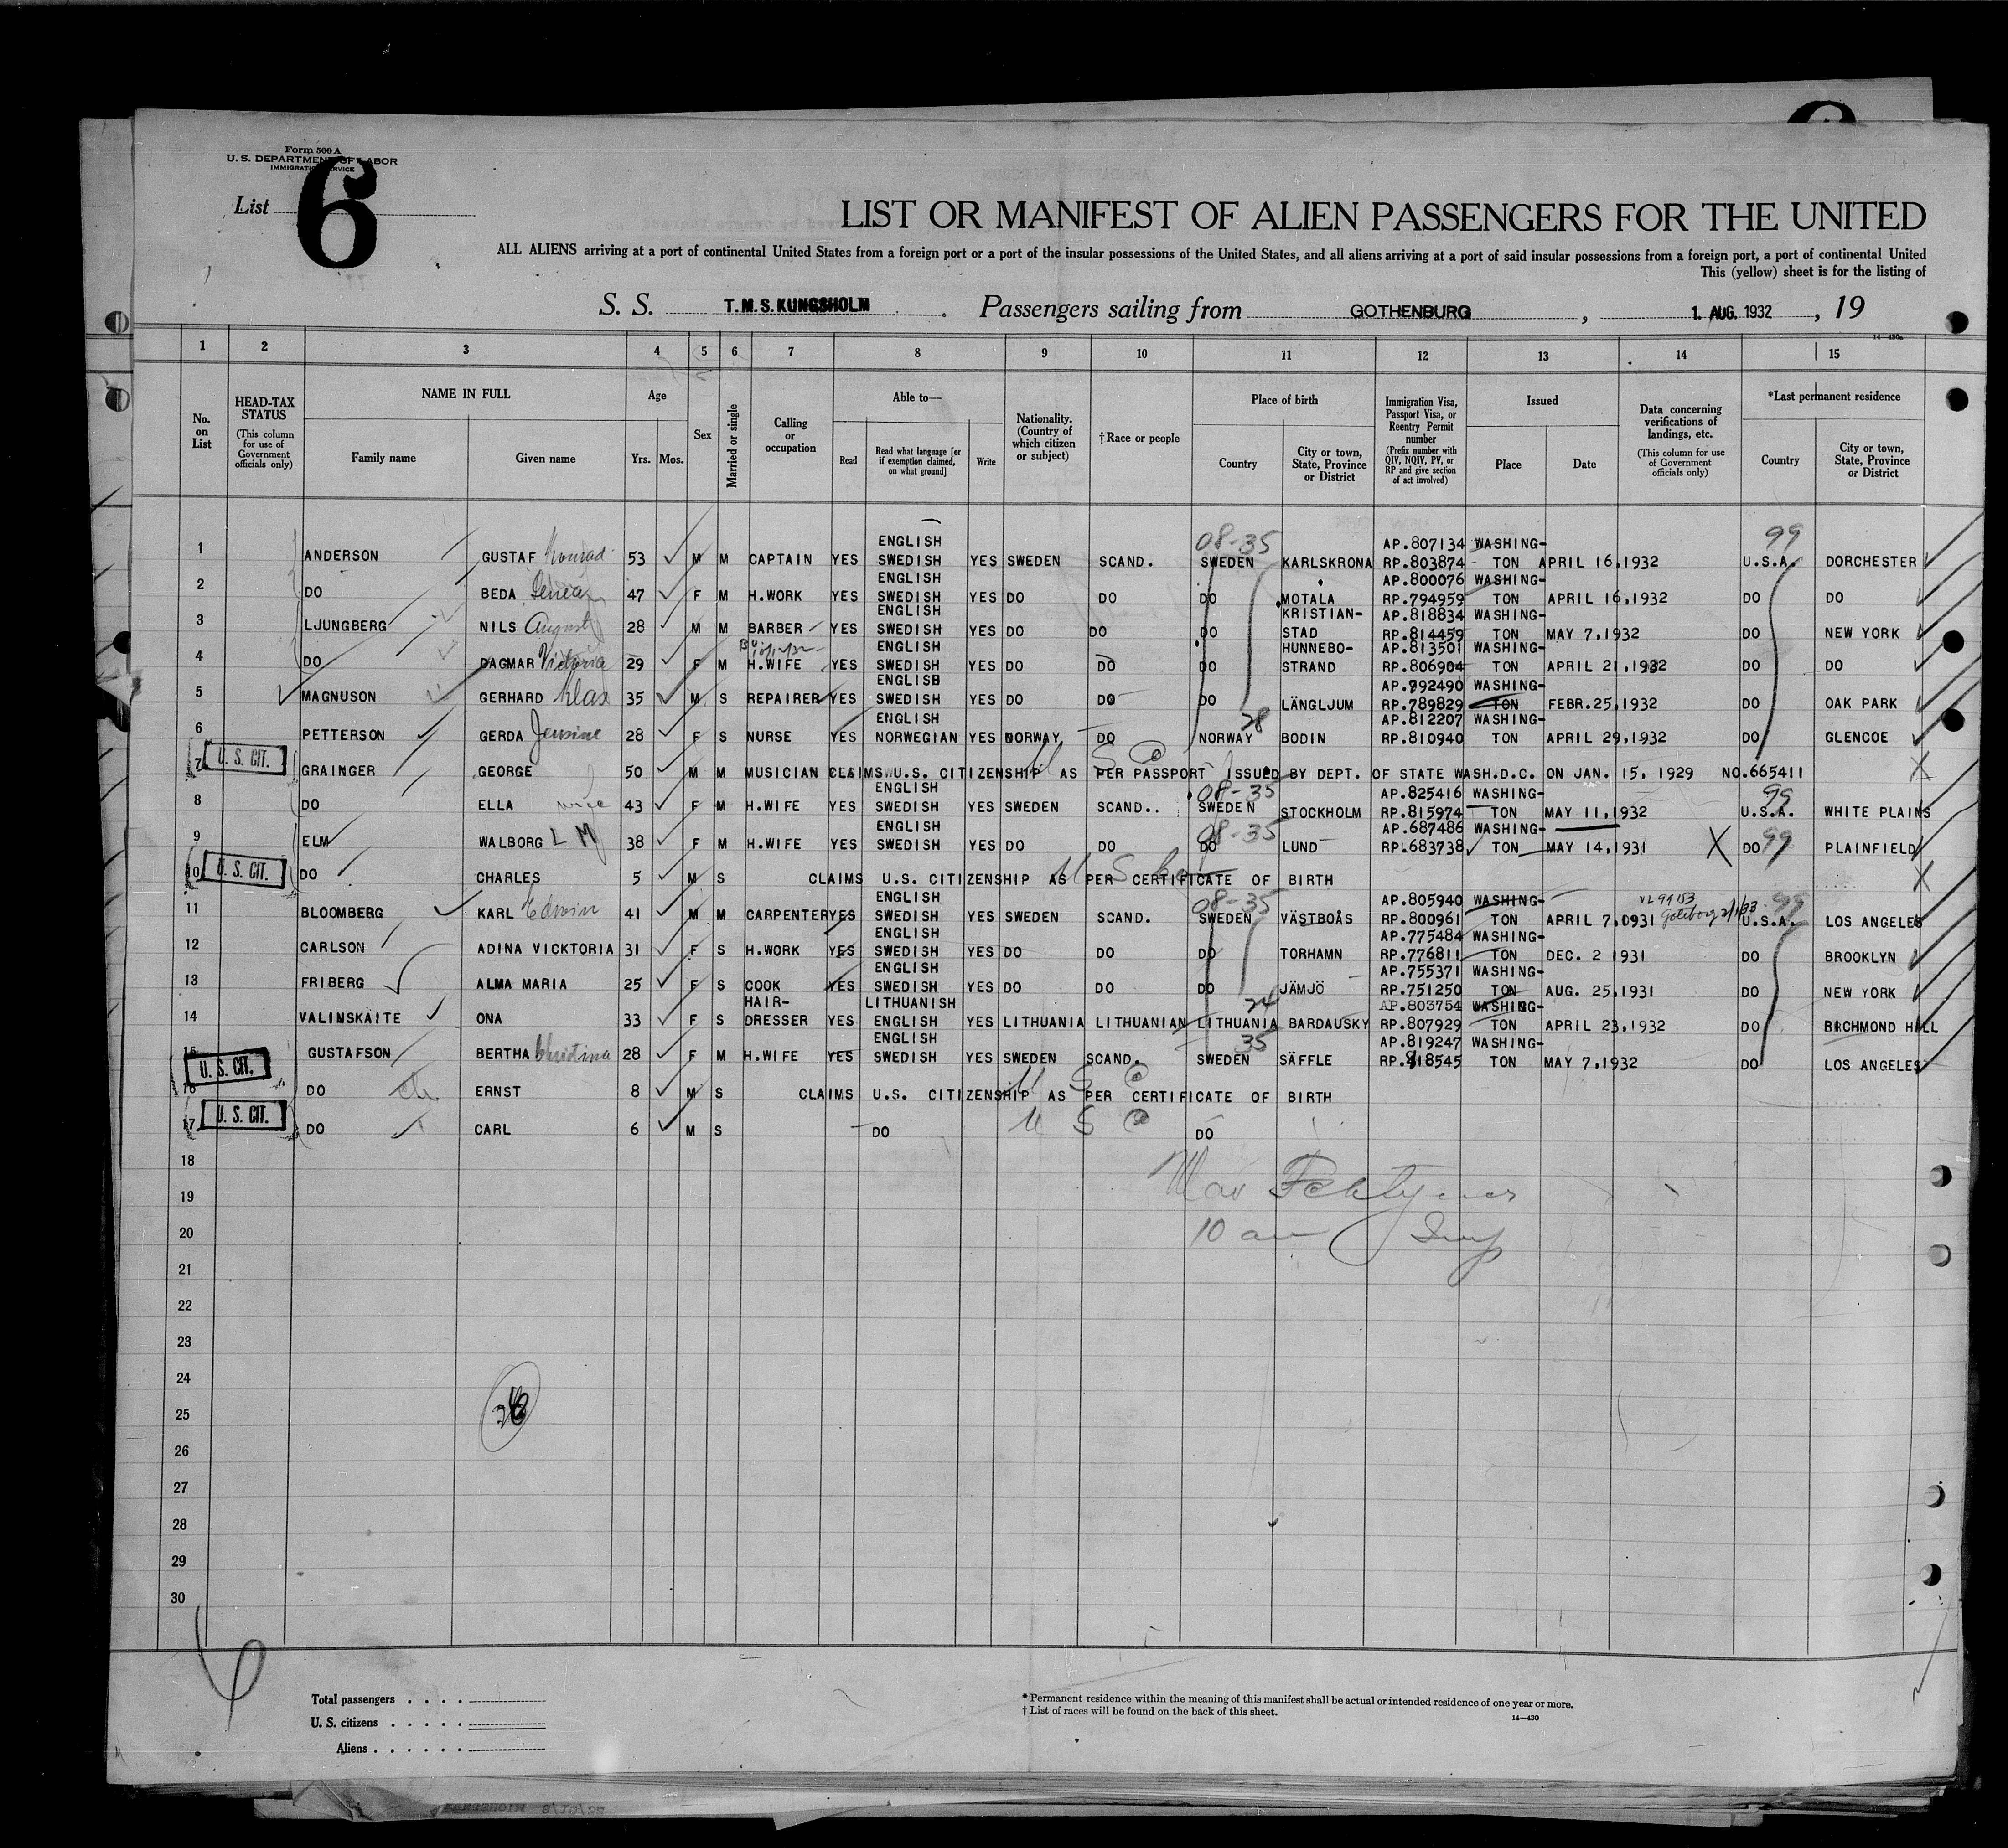 Form 500 A
U. S. DEPARTMENT OF LABOR
IMMIGRATION SERVICE
List 6
LIST OR MANIFEST OF ALIEN PASSENGERS FOR THE UNITED
ALL ALIENS arriving at a port of continental United States from a foreign port or a port of the insular possessions of the United States, and all aliens arriving at a port of said insular possessions from a foreign port, a port of continental United
This (yellow) sheet is for the listing of
S. S. T.M.S. KUNGSHOLM Passengers sailing from GOTHENBURG, 1. AUG. 1932, 19
14—430a
1 2 3 4 5 6 7 8 9 10 11 12 13 14 15
No. on List
HEAD-TAX STATUS (This column for use of Government officials only)
NAME IN FULL
Family name
Given name
Age
Yrs. Mos.
Sex
Married or single
Calling or occupation
Able to—
Read
Read what language [or if exemption claimed, on what ground]
Write
Nationality. (Country of which citizen or subject)
† Race or people
Place of birth
Country
City or town, State, Province or District
Immigration Visa, Passport Visa, or Reentry Permit number (Prefix number with QIV, NQIV, PV, or RP and give section of act involved)
Issued
Place
Date
Data concerning verifications of landings, etc. (This column for use of Government officials only)
*Last permanent residence
Country
City or town, State, Province or District
1 ANDERSON GUSTAF Konrad 53 M M CAPTAIN YES ENGLISH SWEDISH YES SWEDEN SCAND. 08-35 SWEDEN KARLSKRONA AP.807134 RP.803874 WASHING-TON APRIL 16,1932 99 U.S.A. DORCHESTER
2 DO BEDA 47 F M H.WORK YES ENGLISH SWEDISH YES DO DO DO MOTALA AP.800076 RP.794959 WASHING-TON APRIL 16,1932 DO DO
3 LJUNGBERG NILS August 28 M M BARBER YES ENGLISH SWEDISH YES DO DO DO KRISTIAN-STAD AP.818834 RP.814459 WASHING-TON MAY 7,1932 DO NEW YORK
4 DO DAGMAR Victoria 29 F M H.WIFE YES ENGLISH SWEDISH YES DO DO DO HUNNEBO-STRAND AP.813501 RP.806904 WASHING-TON APRIL 21,1932 DO DO
5 MAGNUSON GERHARD Klas 35 M S REPAIRER YES ENGLISB SWEDISH YES DO DO DO LÄNGLJUM AP.792490 RP.789829 WASHING-TON FEBR.25,1932 DO OAK PARK
6 PETTERSON GERDA Jensine 28 F S NURSE YES ENGLISH NORWEGIAN YES NORWAY DO 28 NORWAY BODIN AP.812207 RP.810940 WASHING-TON APRIL 29,1932 DO GLENCOE
7 U. S. CIT. GRAINGER GEORGE 50 M M MUSICIAN CLAIMS U.S. CITIZENSHIP AS PER PASSPORT ISSUED BY DEPT. OF STATE WASH.D.C. ON JAN. 15, 1929 NO.665411 X
8 DO ELLA wife 43 F M H.WIFE YES ENGLISH SWEDISH YES SWEDEN SCAND.. 08-35 SWEDEN STOCKHOLM AP.825416 RP.815974 WASHING-TON MAY 11,1932 99 U.S.A. WHITE PLAINS
9 ELM WALBORG L M 38 F M H.WIFE YES ENGLISH SWEDISH YES DO DO 08-35 DO LUND AP.687486 RP.683738 WASHING-TON MAY 14,1931 X DO 99 PLAINFIELD
10 U. S. CIT. DO CHARLES 5 M S CLAIMS U.S. CITIZENSHIP AS PER CERTIFICATE OF BIRTH X
11 BLOOMBERG KARL Edwin 41 M M CARPENTER YES ENGLISH SWEDISH YES SWEDEN SCAND. 08-35 SWEDEN VÄSTBOÅS AP.805940 RP.800961 WASHING-TON APRIL 7,0931 99 U.S.A. LOS ANGELES
12 CARLSON ADINA VICKTORIA 31 F S H.WORK YES ENGLISH SWEDISH YES DO DO DO TORHAMN AP.775484 RP.776811 WASHING-TON DEC. 2 1931 DO BROOKLYN
13 FRIBERG ALMA MARIA 25 F S COOK YES ENGLISH SWEDISH YES DO DO DO JÄMJÖ AP.755371 RP.751250 WASHING-TON AUG. 25,1931 DO NEW YORK
14 VALINSKAITE ONA 33 F S HAIR-DRESSER YES LITHUANISH ENGLISH YES LITHUANIA LITHUANIAN 24 LITHUANIA BARDAUSKY AP.803754 RP.807929 WASHING-TON APRIL 23,1932 DO RICHMOND HILL
15 GUSTAFSON BERTHA Christina 28 F M H.WIFE YES ENGLISH SWEDISH YES SWEDEN SCAND. 35 SWEDEN SÄFFLE AP.819247 RP.818545 WASHING-TON MAY 7,1932 DO LOS ANGELES
16 U. S. CIT. DO ch ERNST 8 M S CLAIMS U.S. CITIZENSHIP AS PER CERTIFICATE OF BIRTH U S C
17 U. S. CIT. DO CARL 6 M S DO U S C DO
18
19
20 10 am
21
22
23
24
25
26
27
28
29
30
Total passengers
U. S. citizens
Aliens
* Permanent residence within the meaning of this manifest shall be actual or intended residence of one year or more.
† List of races will be found on the back of this sheet.
14—430